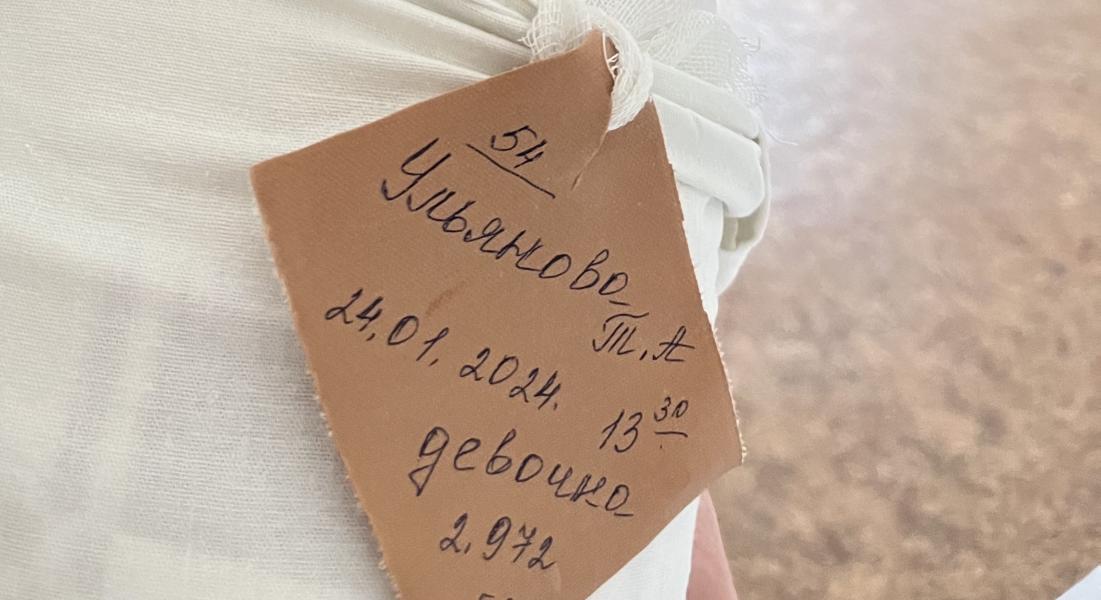 54
Ульянова
Т. А
24.01.2024.
13 30
девочка
2,972